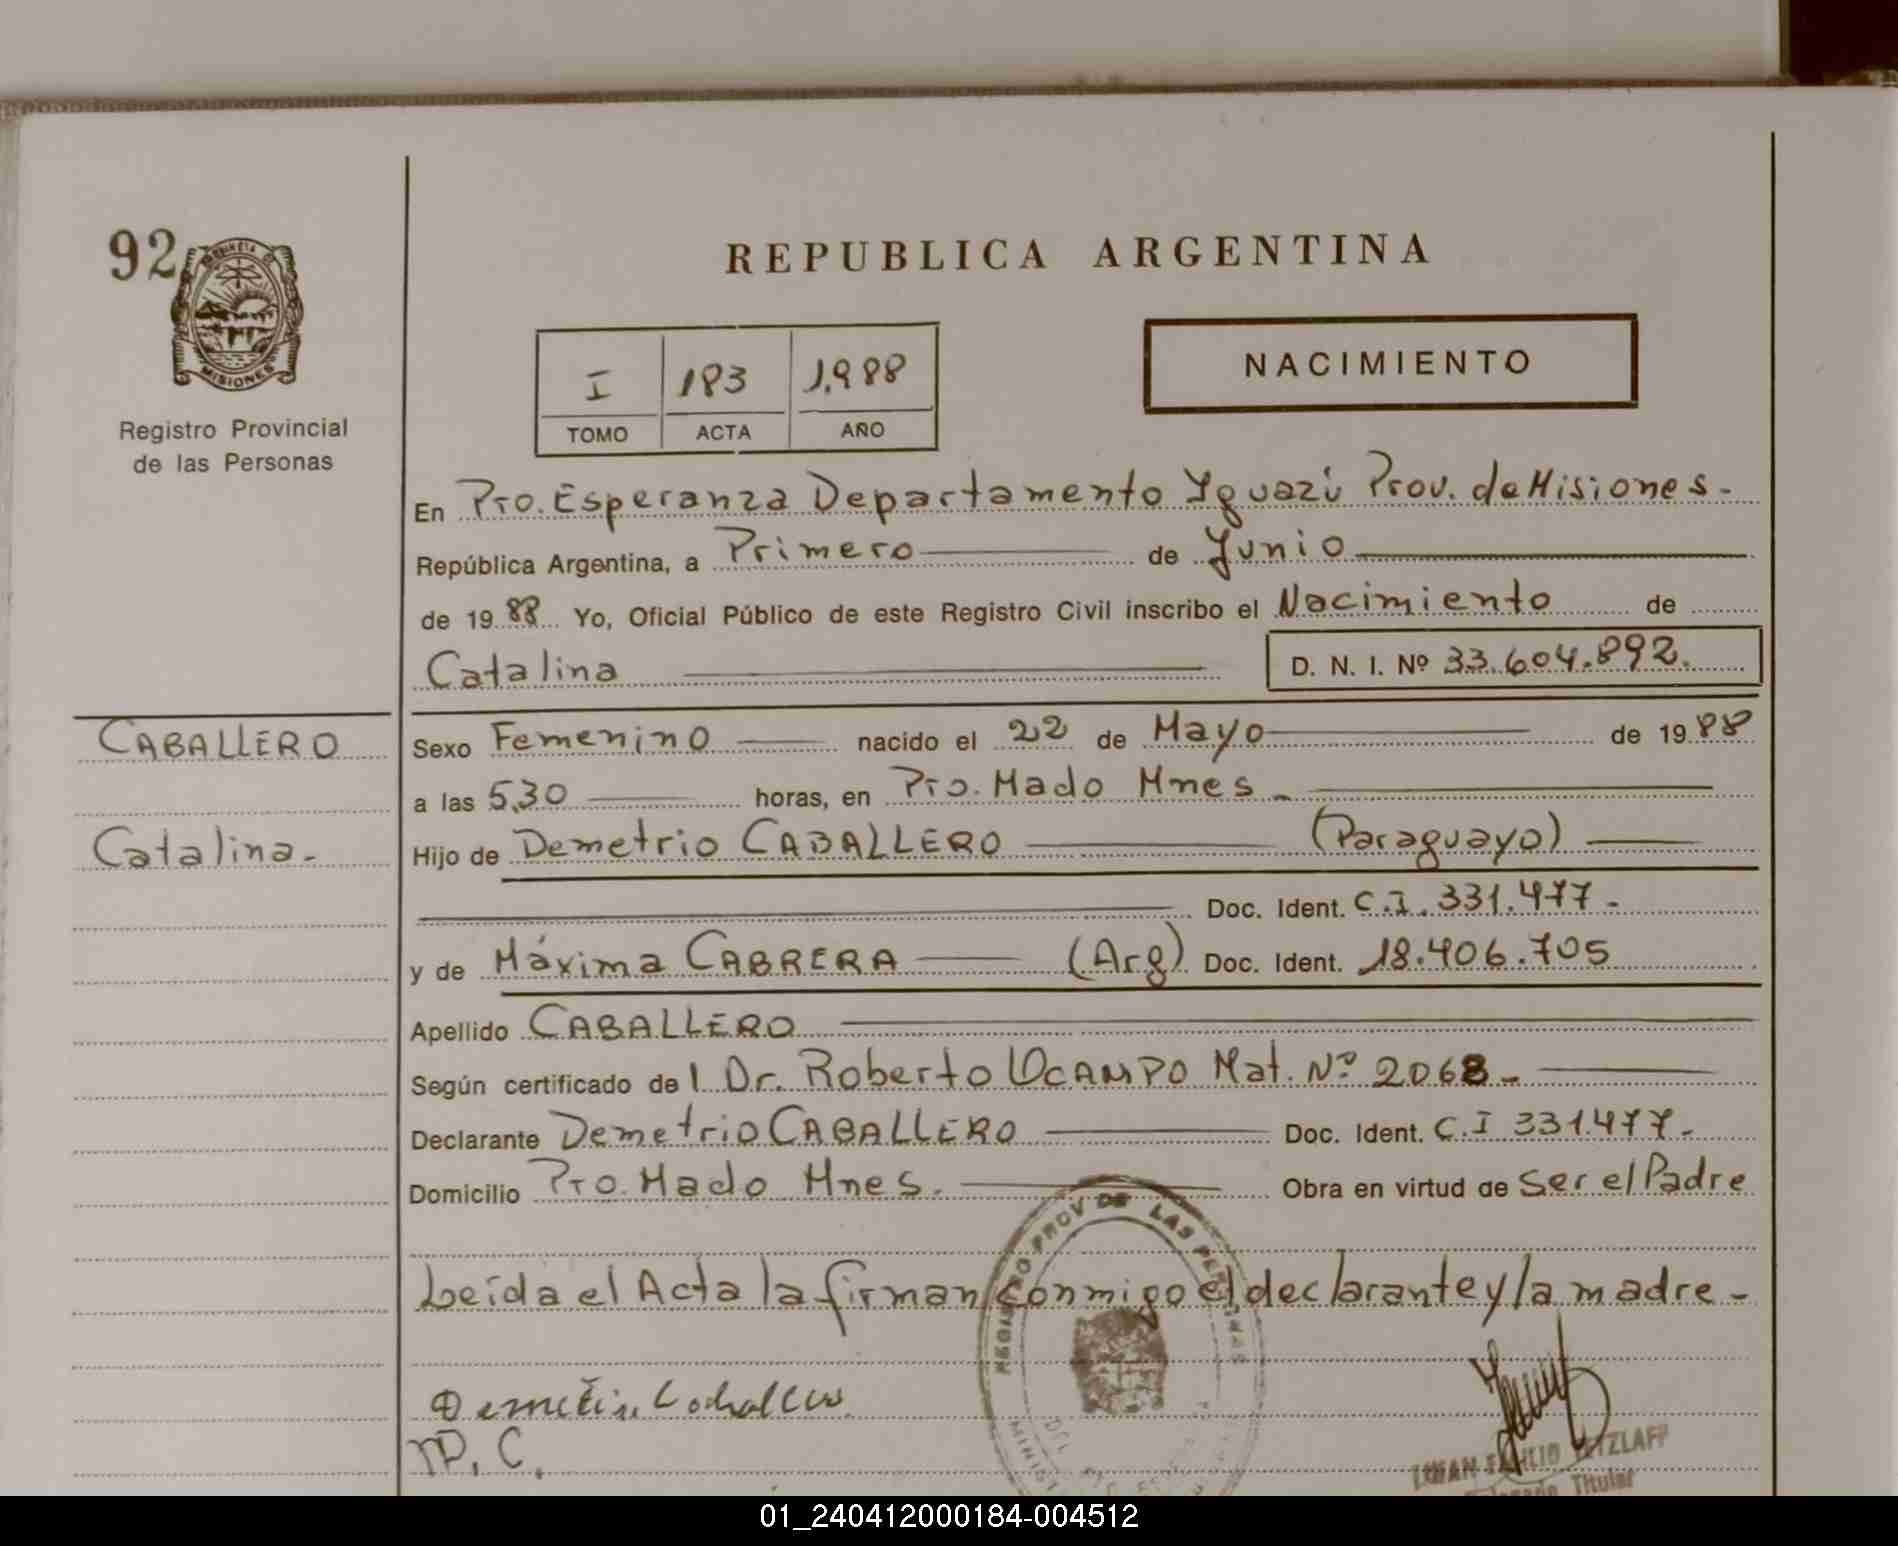 92
MISIONES
Registro Provincial
de las Personas
REPUBLICA ARGENTINA
NACIMIENTO
I 183 1.988
TOMO ACTA AÑO
En Pto. Esperanza Departamento Iguazú Prov. de Misiones.-
República Argentina, a Primero de Junio
de 1988 Yo, Oficial Público de este Registro Civil inscribo el Nacimiento de
Catalina D. N. I. Nº 33.604.892.
CABALLERO
Sexo Femenino nacido el 22 de Mayo de 1988
a las 5,30 horas, en Pto. Mado Mnes.-
Catalina.-
Hijo de Demetrio CABALLERO (Paraguayo)
Doc. Ident. C.I. 331.477.-
y de Máxima CABRERA (Arg) Doc. Ident. 18.406.705
Apellido CABALLERO
Según certificado del Dr. Roberto OCAMPO Mat. Nº 2068.-
Declarante Demetrio CABALLERO Doc. Ident. C.I 331.477.-
Domicilio Pto. Mado Mnes. Obra en virtud de Ser el Padre
REGISTRO PROV DE LAS PERSONAS
Leída el Acta la firman conmigo el declarante y la madre.-
M. C.
Titular
01_240412000184-004512